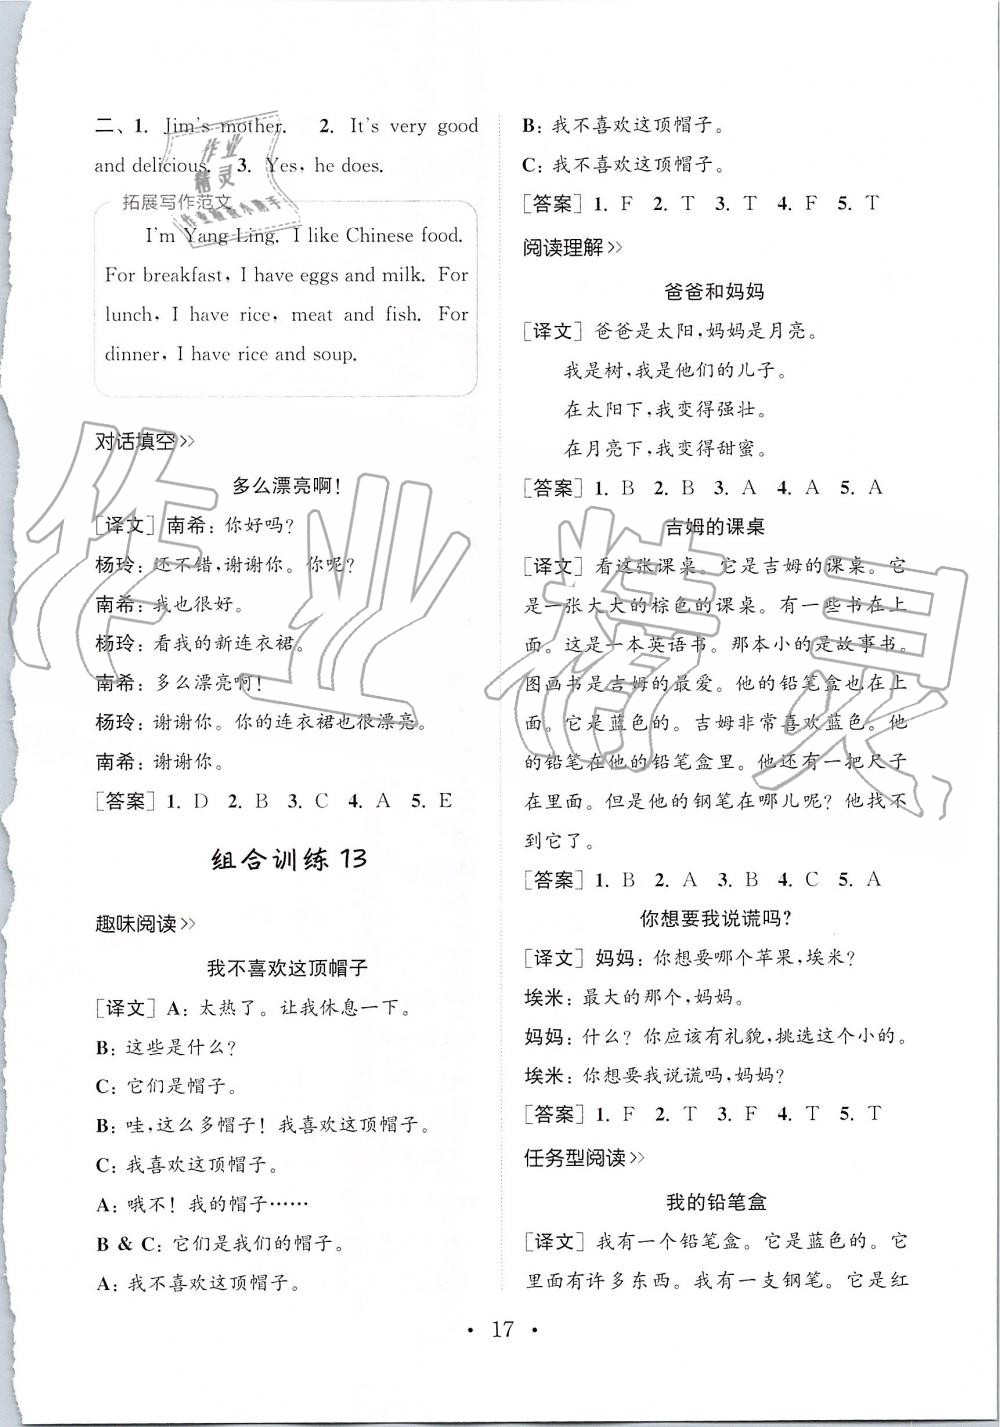 二、1. Jim's mother.  2. It's very good
and delicious.  3. Yes, he does.
拓展写作范文
I'm Yang Ling. I like Chinese food.
For breakfast, I have eggs and milk. For
lunch, I have rice, meat and fish. For
dinner, I have rice and soup.
对话填空>>
多么漂亮啊!
[译文] 南希: 你好吗?
杨玲: 还不错,谢谢你。你呢?
南希: 我也很好。
杨玲: 看我的新连衣裙。
南希: 多么漂亮啊!
杨玲: 谢谢你。你的连衣裙也很漂亮。
南希: 谢谢你。
[答案] 1. D  2. B  3. C  4. A  5. E
组合训练 13
趣味阅读>>
我不喜欢这顶帽子
[译文] A: 太热了。让我休息一下。
B: 这些是什么?
C: 它们是帽子。
B: 哇,这么多帽子! 我喜欢这顶帽子。
C: 我喜欢这顶帽子。
A: 哦不! 我的帽子……
B & C: 它们是我们的帽子。
A: 我不喜欢这顶帽子。
B: 我不喜欢这顶帽子。
C: 我不喜欢这顶帽子。
[答案] 1. F  2. T  3. T  4. F  5. T
阅读理解>>
爸爸和妈妈
[译文] 爸爸是太阳,妈妈是月亮。
我是树,我是他们的儿子。
在太阳下,我变得强壮。
在月亮下,我变得甜蜜。
[答案] 1. B  2. B  3. A  4. A  5. A
吉姆的课桌
[译文] 看这张课桌。它是吉姆的课桌。它
是一张大大的棕色的课桌。有一些书在上
面。这是一本英语书。那本小的是故事书。
图画书是吉姆的最爱。他的铅笔盒也在上
面。它是蓝色的。吉姆非常喜欢蓝色。他
的铅笔在他的铅笔盒里。他还有一把尺子
在里面。但是他的钢笔在哪儿呢? 他找不
到它了。
[答案] 1. B  2. A  3. B  4. C  5. A
你想要我说谎吗?
[译文] 妈妈: 你想要哪个苹果,埃米?
埃米: 最大的那个,妈妈。
妈妈: 什么? 你应该有礼貌,挑选这个小的。
埃米: 你想要我说谎吗,妈妈?
[答案] 1. F  2. T  3. F  4. T  5. T
任务型阅读>>
我的铅笔盒
[译文] 我有一个铅笔盒。它是蓝色的。它
里面有许多东西。我有一支钢笔。它是红
• 17 •
作业精灵
作业
精灵